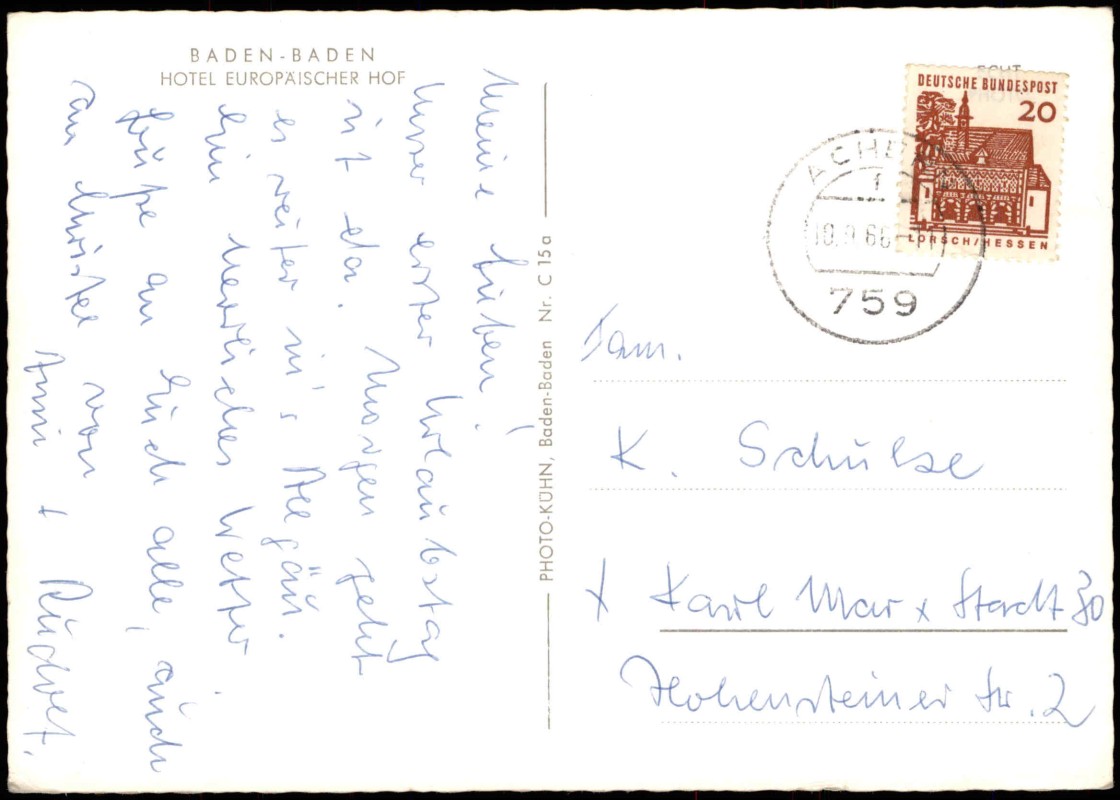 BADEN-BADEN
HOTEL EUROPÄISCHER HOF
Meine Lieben!
Unser erster Urlaubstag
ist da. Morgen geht
es weiter in's Allgäu.
Ein herrliches Wetter.
Grüße an Euch alle, auch
an Christel von
Anni + Rudolf.
PHOTO-KÜHN, Baden-Baden Nr. C 15a
ECHT
DEUTSCHE BUNDESPOST
20
LORSCH/HESSEN
ACHERN
1
66
759
Fam.
K. Schulze
X Karl Marx Stadt 30
Hohensteiner Str. 2